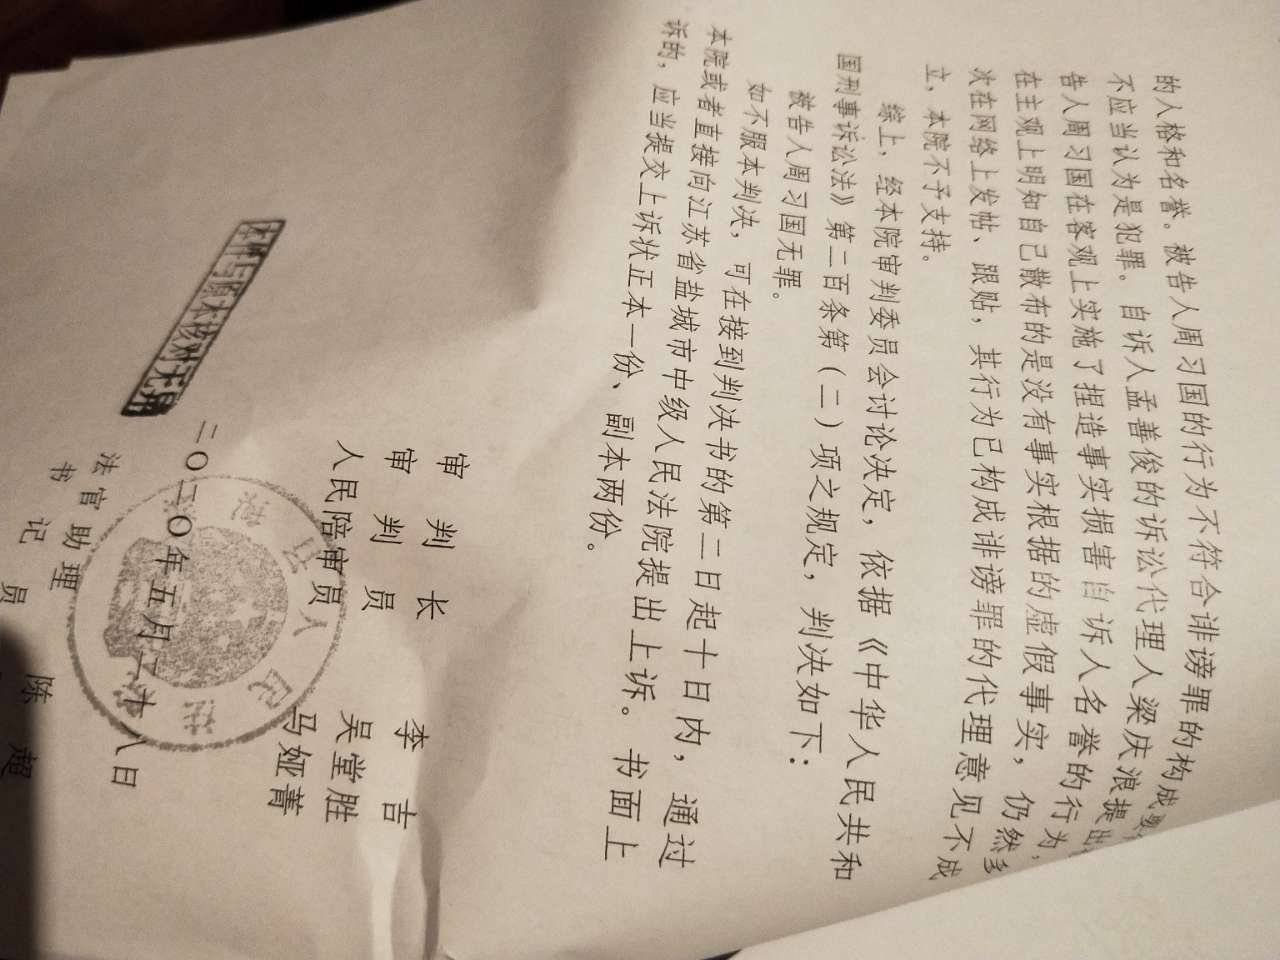 的人格和名誉。被告人周习国的行为不符合诽谤罪的构成要
不应当认为是犯罪。自诉人孟善俊的诉讼代理人梁庆浪提出
告人周习国在客观上实施了捏造事实损害自诉人名誉的行为,
在主观上明知自己散布的是没有事实根据的虚假事实,仍然多
次在网络上发帖、跟贴,其行为已构成诽谤罪的代理意见不成
立,本院不予支持。
综上,经本院审判委员会讨论决定,依据《中华人民共和
国刑事诉讼法》第二百条第(二)项之规定,判决如下:
被告人周习国无罪。
如不服本判决,可在接到判决书的第二日起十日内,通过
本院或者直接向江苏省盐城市中级人民法院提出上诉。书面上
诉的,应当提交上诉状正本一份、副本两份。
审判长 李吉
审判员 吴堂胜
人民陪审员 马娅菁
二〇二〇年五月二十八日
本件与原本核对无异
法官助理 陈超
书记员
人民法